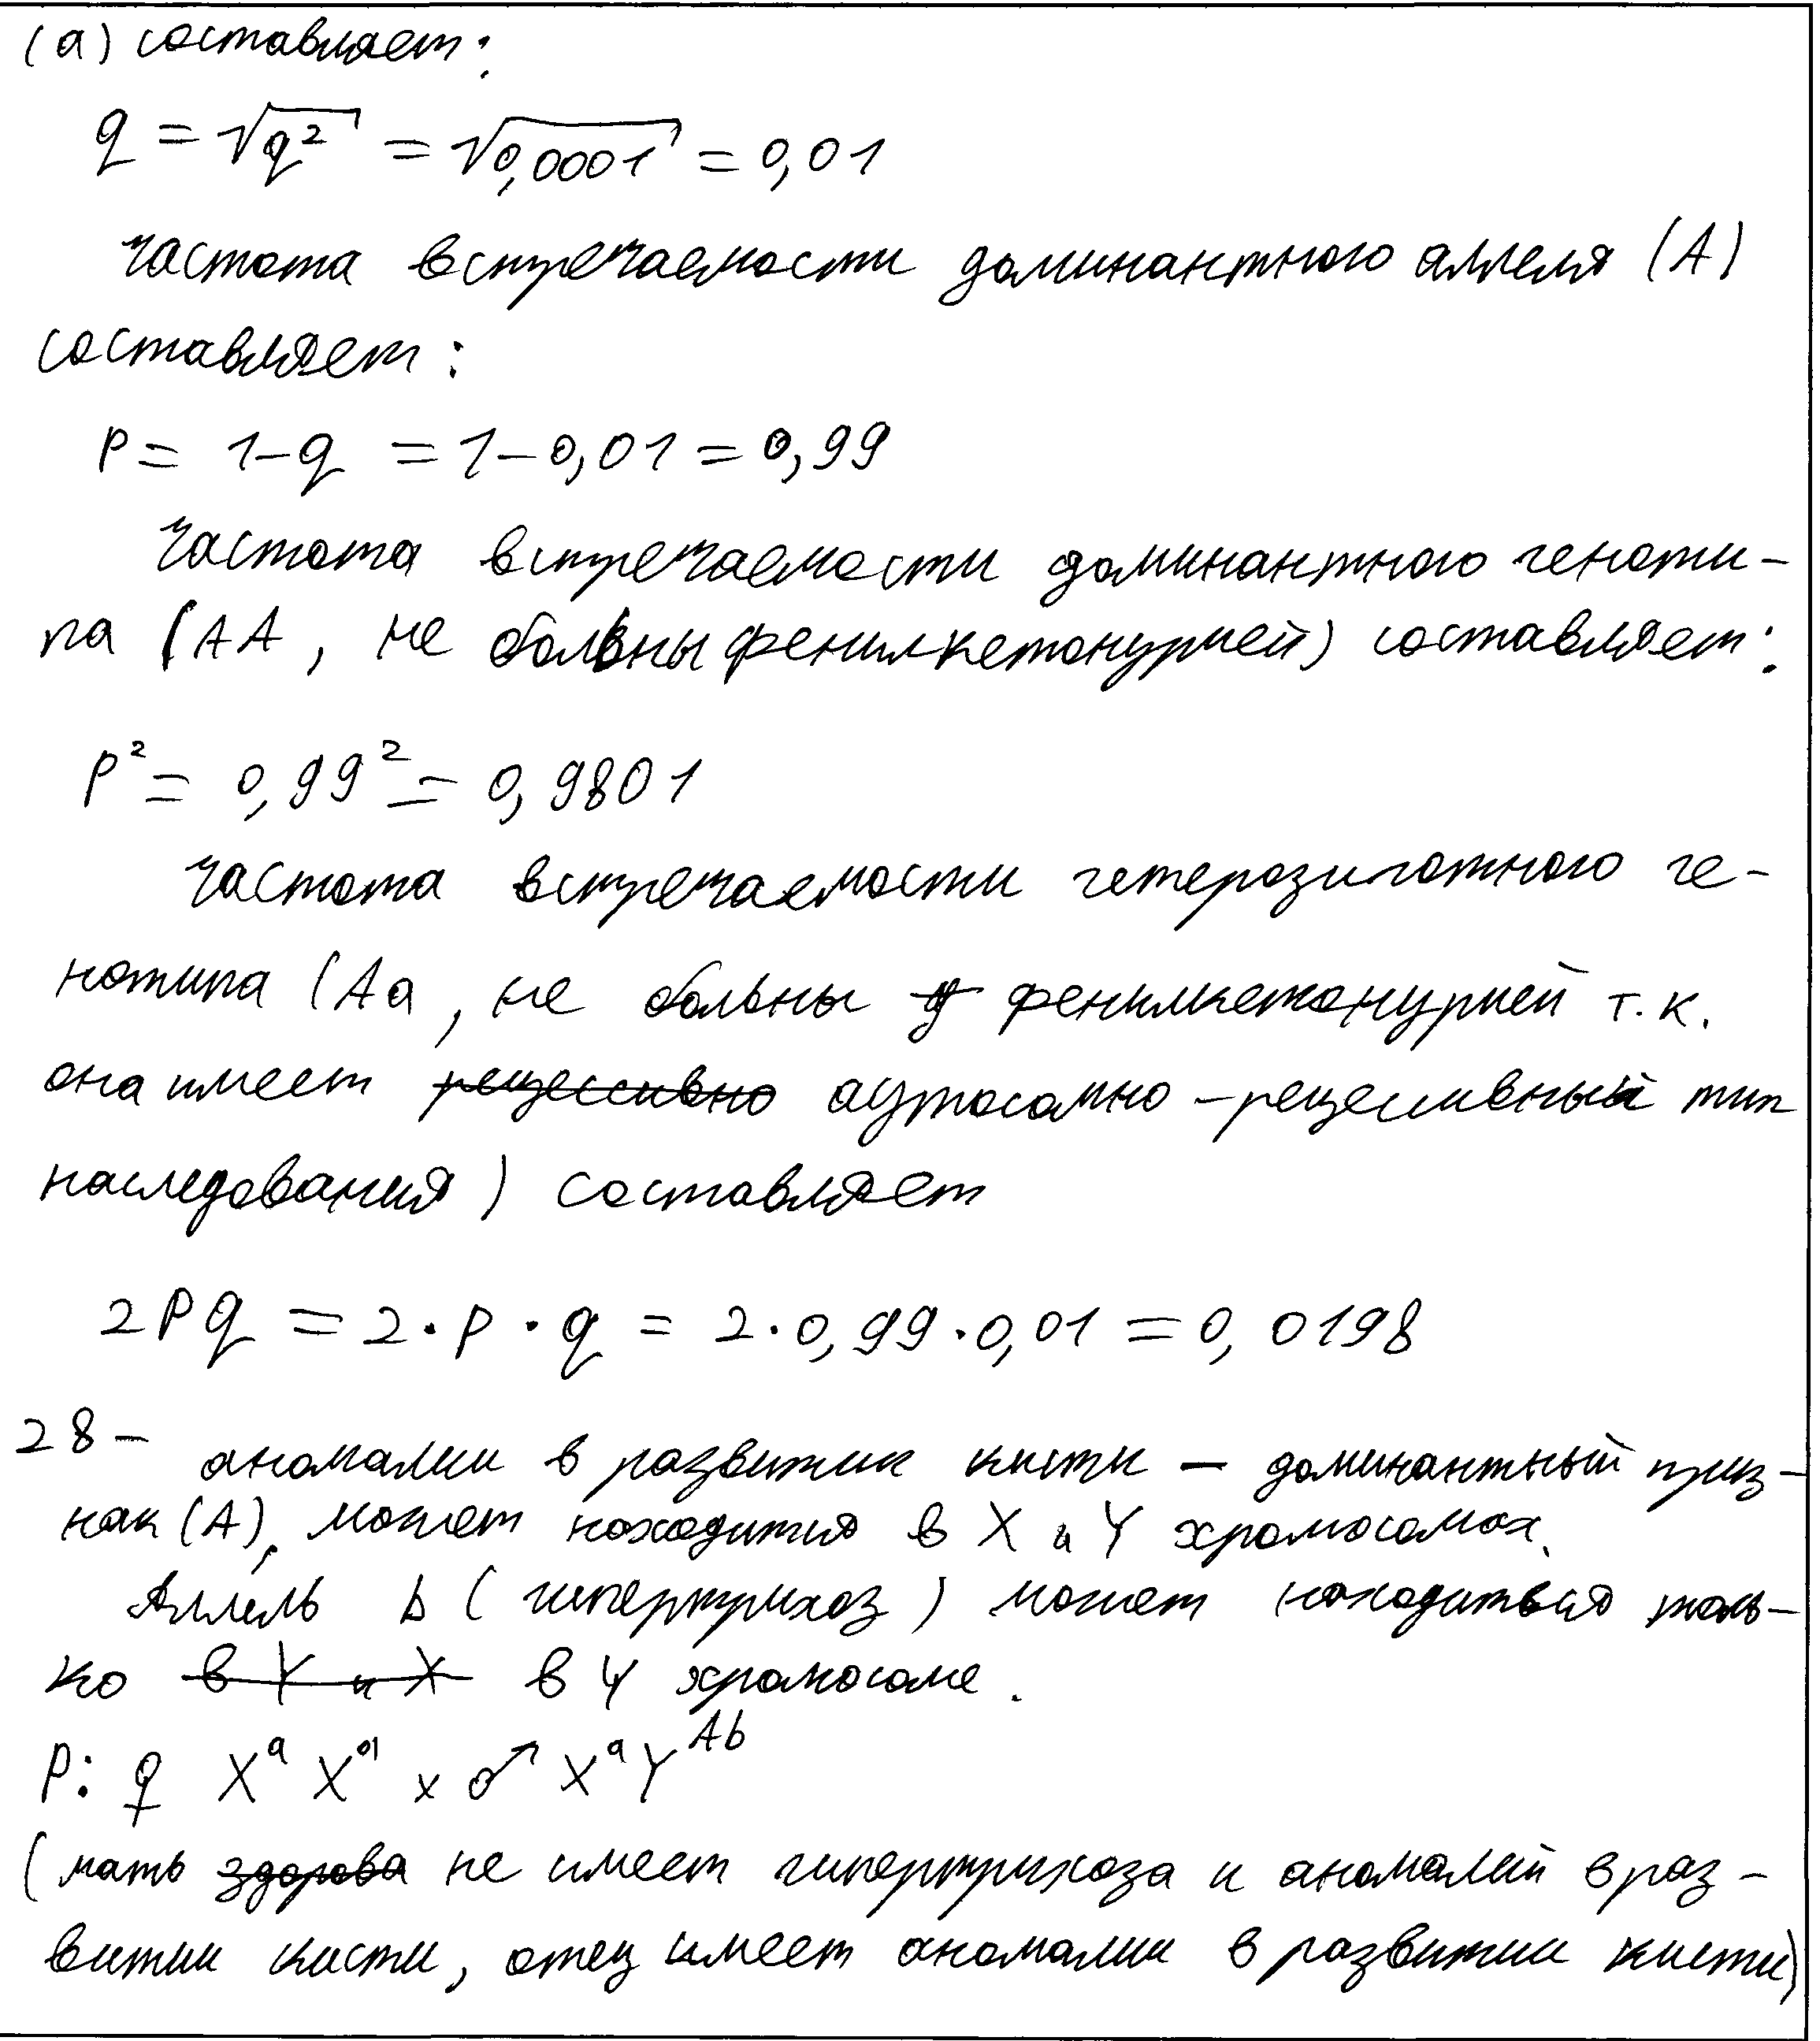 (а) составляет:
q = √q² = √0,0001 = 0,01
частота встречаемости доминантного аллеля (А)
составляет:
p = 1-q = 1-0,01 = 0,99
Частота встречаемости доминантного геноти-
па (АА, не больны фенилкетонурией) составляет:
p² = 0,99² = 0,9801
Частота встречаемости гетерозиготного ге-
нотипа (Аа, не больны у фенилкетонурией т.к.
она имеет рецессивно аутосомно-рецессивный тип
наследования) составляет
2pq = 2·p·q = 2·0,99·0,01 = 0,0198
28- аномалии в развитии кисти – доминантный приз-
нак (А), может находится в X и Y хромосомах.
Аллель b (гипертрихоз) может находиться толь-
ко в Y и X в Y хромосоме.
P: ♀ XᵃXᵃ x ♂ XᵃYᴬᵇ
(мать здорова не имеет гипертрихоза и аномалий в раз-
витии кисти, отец имеет аномалии в развитии кисти)